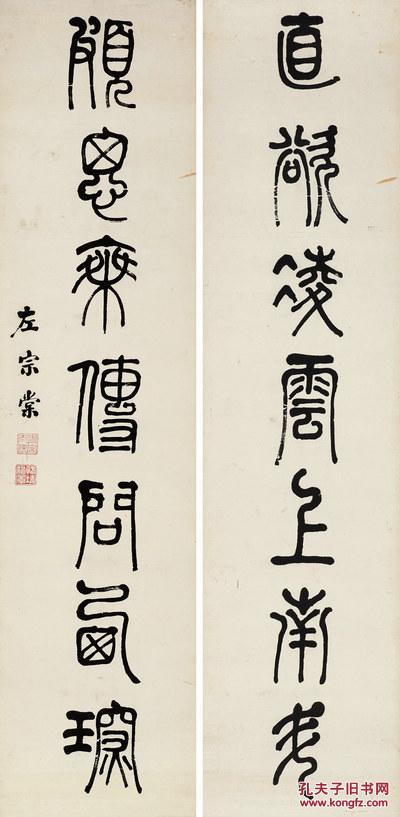 直欲凌雲上南斗
頗思乘傳問西琛
左宗棠
孔夫子旧书网
www.kongfz.com